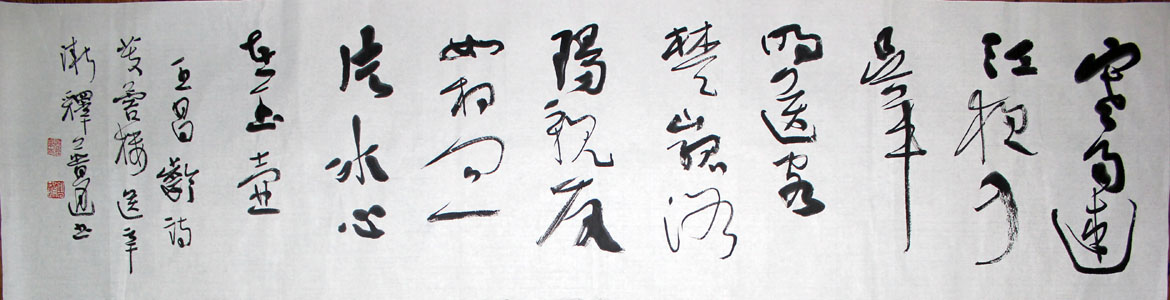 寒雨連
江夜入
吳平
明送客
楚山孤洛
陽親友
如相問一
片冰心
在玉壺
王昌齡詩
芙蓉樓送辛
漸釋書